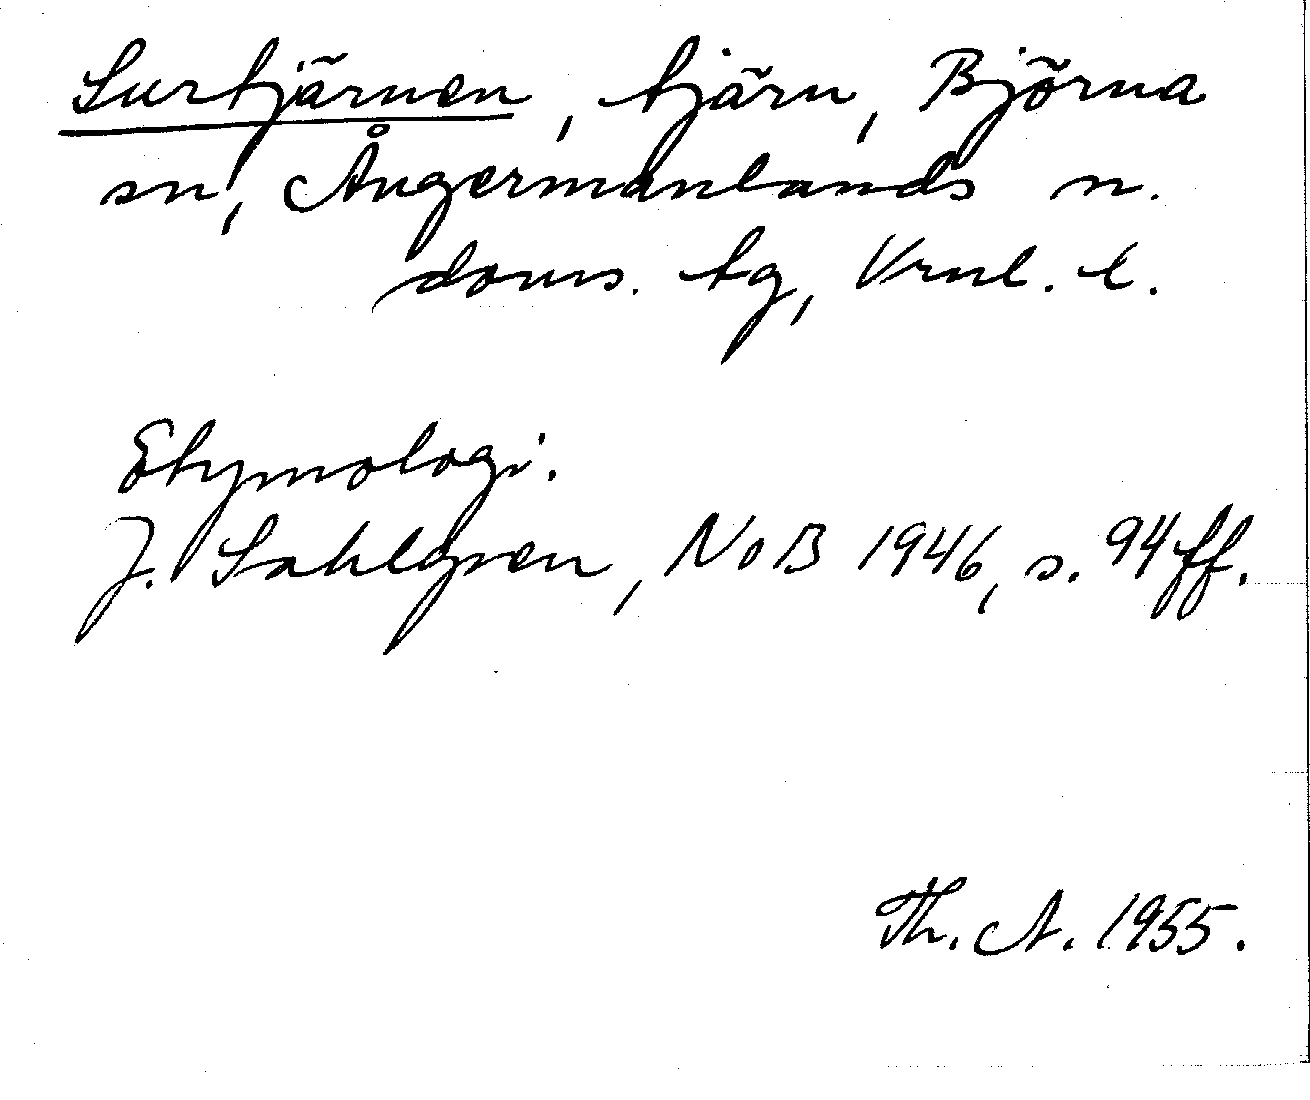 Surtjärnen, tjärn, Björna
sn, Ångermanlands n.
doms. tg, Vrnl. l.
Etymologi.
J. Sahlgren, NoB 1946, s. 94 ff.
Th. A. 1955.